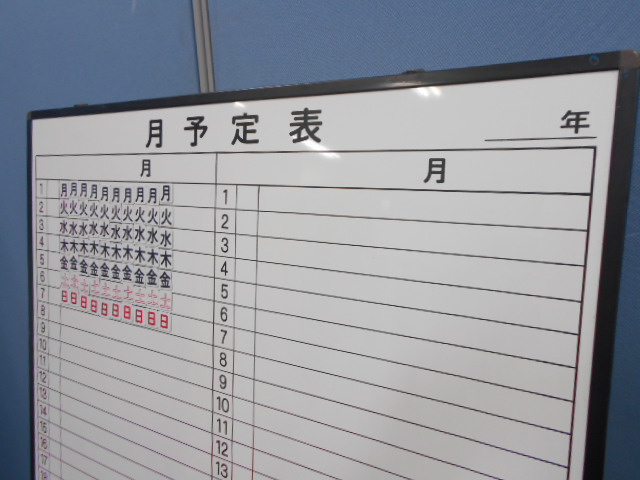 月予定表
年
月 月
1 月月月月月月月月月月 1
2 火火火火火火火火火火 2
3 水水水水水水水水水水 3
4 木木木木木木木木木木 4
5 金金金金金金金金金金 5
6 土土土土土土土土土土 6
7 日日日日日日日日日日 7
8 8
9 9
10 10
11 11
12 12
13 13
14
15
16
17
18